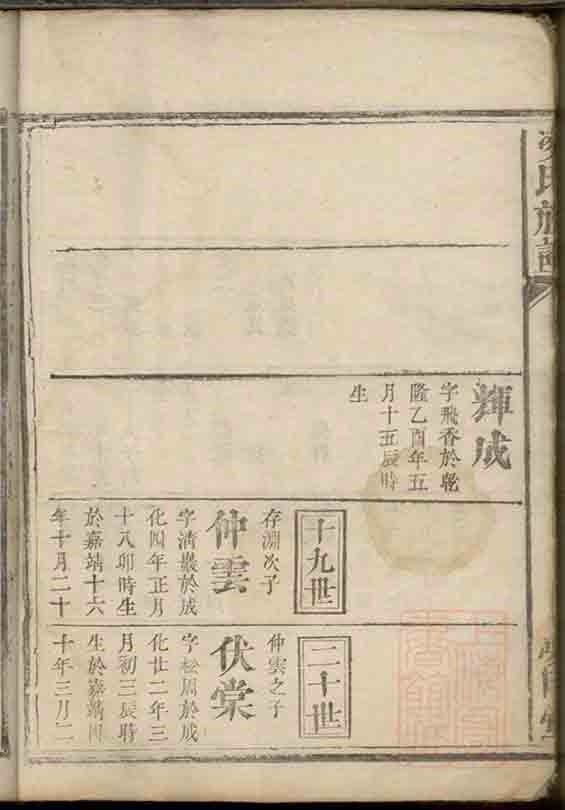 氏族譜
輝成
字飛香於乾
隆乙酉年五
月十五辰時
生
十九世
存淵次子
仲雲
字清巖於成
化四年正月
十八卯時生
於嘉靖十六
年十月二十
二十世
仲雲之子
伏棠
字松周於成
化廿二年三
月初三辰時
生於嘉靖四
十年三月二